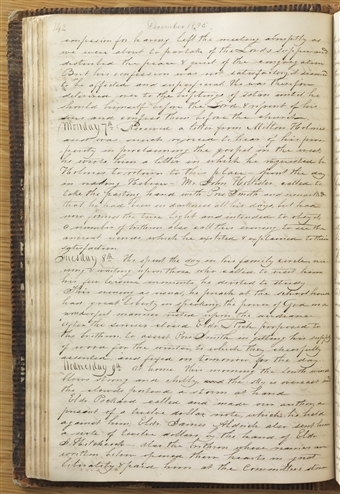 42 December 1835
confession for having left the meeting abruptly as
we were about to partake of the Lord's supper and
disturbed the peace & quiet of the congregation
But his confession was not satisfactory it seemed
to be affected and he was therefore
delivered over to the buffetings of satan until he
should humble himself before the Lord & repent of his
sins and confess them before the church
Monday 7th Received a letter from Milton Holmes
and was much rejoiced to hear of his pros
perity in proclaiming the gospel in the west
he wrote him a letter in which he requested
Holmes to return to this place spent the day
in reading Hebrew. Mr. John Hollister called to
take the parting hand with and remarked
that he had been in darkness all his days but had
now found the true light and intended to obey it
a number of brethren also called this evening to see the
ancient records which he exhibited & explained to their
satisfaction
Tuesday 8th He spent the day in his family circle read
ing & waiting upon those who called to visit him
his few leisure moments he devoted to study
This evening as usual he preached at the school house
had great liberty in speaking the power of God in a
wonderful manner rested upon the audience
after the services closed Elder proposed to
the brethren to assist in getting his supply
of wood for the winter to which they cheerfully
assented and fixed on tomorrow for the day
Wednesday 9th At home This morning the south wind
blows strong and chilly and the sky is overcast and
the clouds bear a storm at hand.
Elder Packard called and made him a
present of a twelve dollar note, which he held
against him Elder James Aldrich also sent him
a note of twelve dollars by the hand of Elder
J. Hitchcock also the brethren whose names are
written below opened their hearts in great
liberality & paid him at the Committee's store